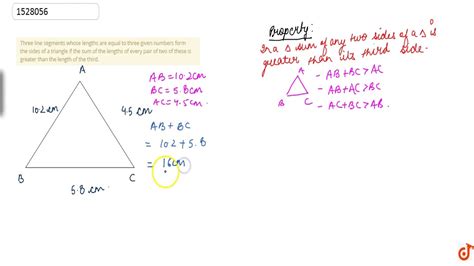 1528056
Three line segments whose lengths are equal to three given numbers form
the sides of a triangle if the sum of the lengths of every pair of two of these is
greater than the length of the third.
A
10.2 cm
4.5 cm
B
C
5.8 cm
AB = 10.2 cm
BC = 5.8 cm
AC = 4.5 cm
AB + BC
= 10.2 + 5.8
= 16 cm
Property:
In a Δ sum of any two sides of a Δ is
greater than its third side.
A
B
C
- AB + BC > AC
- AB + AC > BC
- AC + BC > AB.
doubtnut